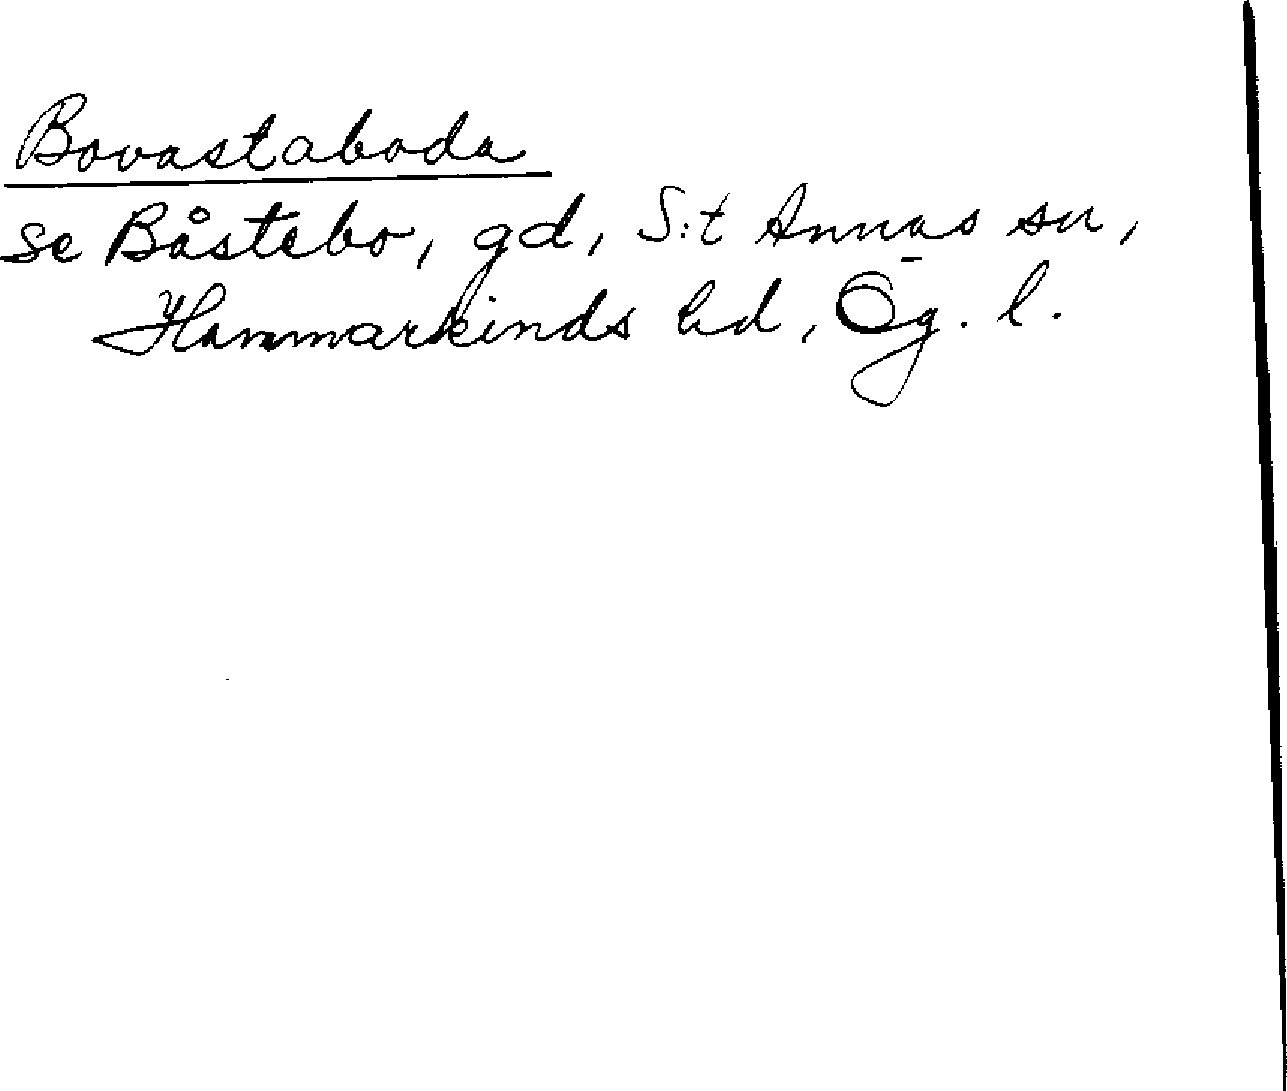 Bovastaboda
se Båstebo, gd, S:t Annas sn,
Hammarkinds hd, Ög. l.